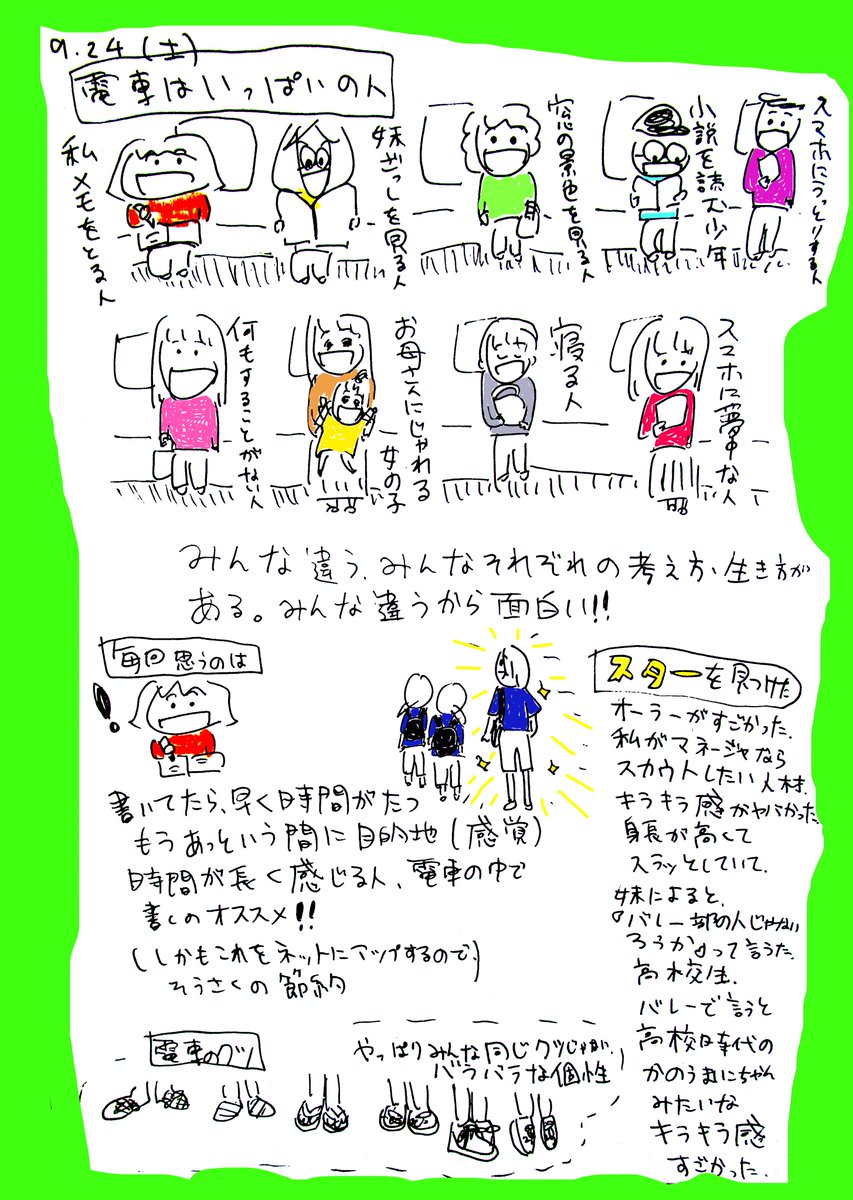 9.24(土)
電車はいっぱいの人
私メモをとる人
妹ざっしを見る人
窓の景色を見る人
小説を読む少年
スマホにうっとりする人
何もすることがない人
お母さんにじゃれる
女の子
寝る人
スマホに夢中な人
みんな違う、みんなそれぞれの考え方、生き方が
ある。みんな違うから面白い!!
毎回思うのは
!
書いてたら、早く時間がたつ
もうあっという間に目的地(感覚)
時間が長く感じる人、電車の中で
書くのオススメ!!
(しかもこれをネットにアップするので、)
そうさくの節約
スターを見つけた
オーラーがすごかった。
私がマネージャなら
スカウトしたい人材。
キラキラ感がヤバかった。
身長が高くて
スラッとしていて、
妹によると、
『バレー部の人じゃない
ろうか』って言うた。
高校生。
バレーで言うと
高校時代の
かのうまいにちゃん
みたいな
キラキラ感
すごかった。
電車のクツ
やっぱりみんな同じクツじゃない、
バラバラな個性